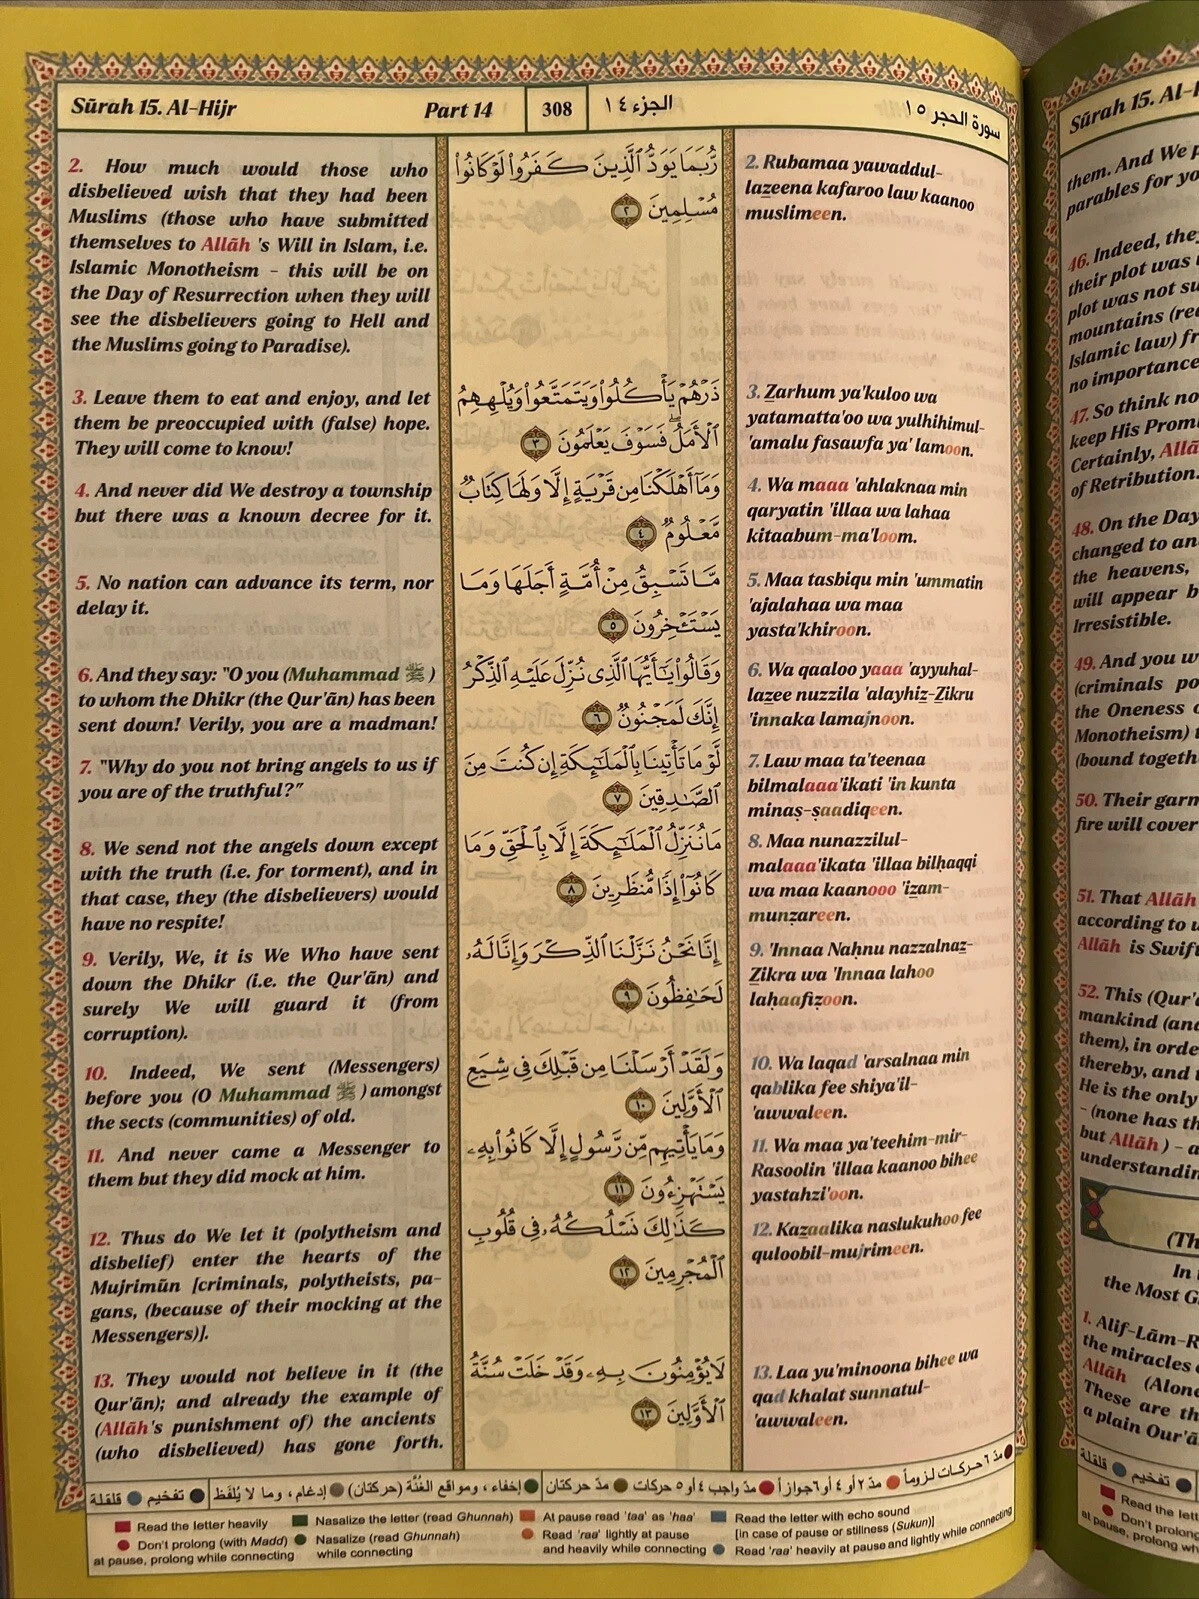 Sūrah 15. Al-Hijr
Part 14
308
الجزء ١٤
سورة الحجر ١٥
2. How much would those who
disbelieved wish that they had been
Muslims (those who have submitted
themselves to Allāh 's Will in Islam, i.e.
Islamic Monotheism - this will be on
the Day of Resurrection when they will
see the disbelievers going to Hell and
the Muslims going to Paradise).
3. Leave them to eat and enjoy, and let
them be preoccupied with (false) hope.
They will come to know!
4. And never did We destroy a township
but there was a known decree for it.
5. No nation can advance its term, nor
delay it.
6. And they say: "O you (Muhammad ﷺ )
to whom the Dhikr (the Qur'ān) has been
sent down! Verily, you are a madman!
7. "Why do you not bring angels to us if
you are of the truthful?"
8. We send not the angels down except
with the truth (i.e. for torment), and in
that case, they (the disbelievers) would
have no respite!
9. Verily, We, it is We Who have sent
down the Dhikr (i.e. the Qur'ān) and
surely We will guard it (from
corruption).
10. Indeed, We sent (Messengers)
before you (O Muhammad ﷺ ) amongst
the sects (communities) of old.
11. And never came a Messenger to
them but they did mock at him.
12. Thus do We let it (polytheism and
disbelief) enter the hearts of the
Mujrimūn [criminals, polytheists, pa-
gans, (because of their mocking at the
Messengers)].
13. They would not believe in it (the
Qur'ān); and already the example of
(Allāh's punishment of) the ancients
(who disbelieved) has gone forth.
رُّبَمَا يَوَدُّ ٱلَّذِينَ كَفَرُوا۟ لَوْ كَانُوا۟
مُسْلِمِينَ ٢
ذَرْهُمْ يَأْكُلُوا۟ وَيَتَمَتَّعُوا۟ وَيُلْهِهِمُ
ٱلْأَمَلُ ۖ فَسَوْفَ يَعْلَمُونَ ٣
وَمَآ أَهْلَكْنَا مِن قَرْيَةٍ إِلَّا وَلَهَا كِتَابٌ
مَّعْلُومٌ ٤
مَّا تَسْبِقُ مِنْ أُمَّةٍ أَجَلَهَا وَمَا
يَسْتَـْٔخِرُونَ ٥
وَقَالُوا۟ يَـٰٓأَيُّهَا ٱلَّذِى نُزِّلَ عَلَيْهِ ٱلذِّكْرُ
إِنَّكَ لَمَجْنُونٌ ٦
لَّوْ مَا تَأْتِينَا بِٱلْمَلَـٰٓئِكَةِ إِن كُنتَ مِنَ
ٱلصَّـٰدِقِينَ ٧
مَا نُنَزِّلُ ٱلْمَلَـٰٓئِكَةَ إِلَّا بِٱلْحَقِّ وَمَا
كَانُوٓا۟ إِذًا مُّنظَرِينَ ٨
إِنَّا نَحْنُ نَزَّلْنَا ٱلذِّكْرَ وَإِنَّا لَهُۥ
لَحَـٰفِظُونَ ٩
وَلَقَدْ أَرْسَلْنَا مِن قَبْلِكَ فِى شِيَعِ
ٱلْأَوَّلِينَ ١٠
وَمَا يَأْتِيهِم مِّن رَّسُولٍ إِلَّا كَانُوا۟ بِهِۦ
يَسْتَهْزِءُونَ ١١
كَذَٰلِكَ نَسْلُكُهُۥ فِى قُلُوبِ
ٱلْمُجْرِمِينَ ١٢
لَا يُؤْمِنُونَ بِهِۦ وَقَدْ خَلَتْ سُنَّةُ
ٱلْأَوَّلِينَ ١٣
2. Rubamaa yawaddul-
lazeena kafaroo law kaanoo
muslimeen.
3. Zarhum ya'kuloo wa
yatamatta'oo wa yulhihimul-
'amalu fasawfa ya' lamoon.
4. Wa maaa 'ahlaknaa min
qaryatin 'illaa wa lahaa
kitaabum-ma'loom.
5. Maa tasbiqu min 'ummatin
'ajalahaa wa maa
yasta'khiroon.
6. Wa qaaloo yaaa 'ayyuhal-
lazee nuzzila 'alayhiz-Zikru
'innaka lamajnoon.
7. Law maa ta'teenaa
bilmalaaa'ikati 'in kunta
minaṣ-ṣaadiqeen.
8. Maa nunazzilul-
malaaa'ikata 'illaa bilḥaqqi
wa maa kaanooo 'iẓam-
munẓareen.
9. 'Innaa Naḥnu nazzalnaz-
Zikra wa 'Innaa lahoo
laḥaafiẓoon.
10. Wa laqad 'arsalnaa min
qablika fee shiya'il-
'awwaleen.
11. Wa maa ya'teehim-mir-
Rasoolin 'illaa kaanoo bihee
yastahzi'oon.
12. Kazaalika naslukuhoo fee
quloobil-mujrimeen.
13. Laa yu'minoona bihee wa
qad khalat sunnatul-
'awwaleen.
مدّ ٦ حركات لزوماً مدّ ٢ أو ٤ أو ٦ جوازاً مدّ واجب ٤ أو ٥ حركات مدّ حركتان إخفاء، ومواقع الغُنَّة (حركتان) إدغام، وما لا يُلفَظ تفخيم قلقلة
Read the letter heavily
Don't prolong (with Madd)
at pause, prolong while connecting
Nasalize the letter (read Ghunnah)
Nasalize (read Ghunnah)
while connecting
At pause read 'taa' as 'haa'
Read 'raa' lightly at pause
and heavily while connecting
Read the letter with echo sound
[in case of pause or stillness (Sukun)]
Read 'raa' heavily at pause and lightly while connecting
Sūrah 15. Al-
them. And We
parables for
46. Indeed,
their plot was
plot was not
mountains
Islamic law)
no importance
47. So think
keep His
Certainly,
of Retribution.
48. On the Day
changed to
the heavens,
will appear
Irresistible.
49. And you
(criminals
the Oneness
Monotheism)
(bound
50. Their
fire will cover
51. That Allāh
according to
Allāh is
52. This
mankind
them), in
thereby, and
He is the only
- (none has
but Allāh ) -
In
the Most
1. Alif-Lām-
the miracles
Allāh (Alone
These are
a plain
تفخيم قلقلة
Read the
Don't prolong
at pause, prolong